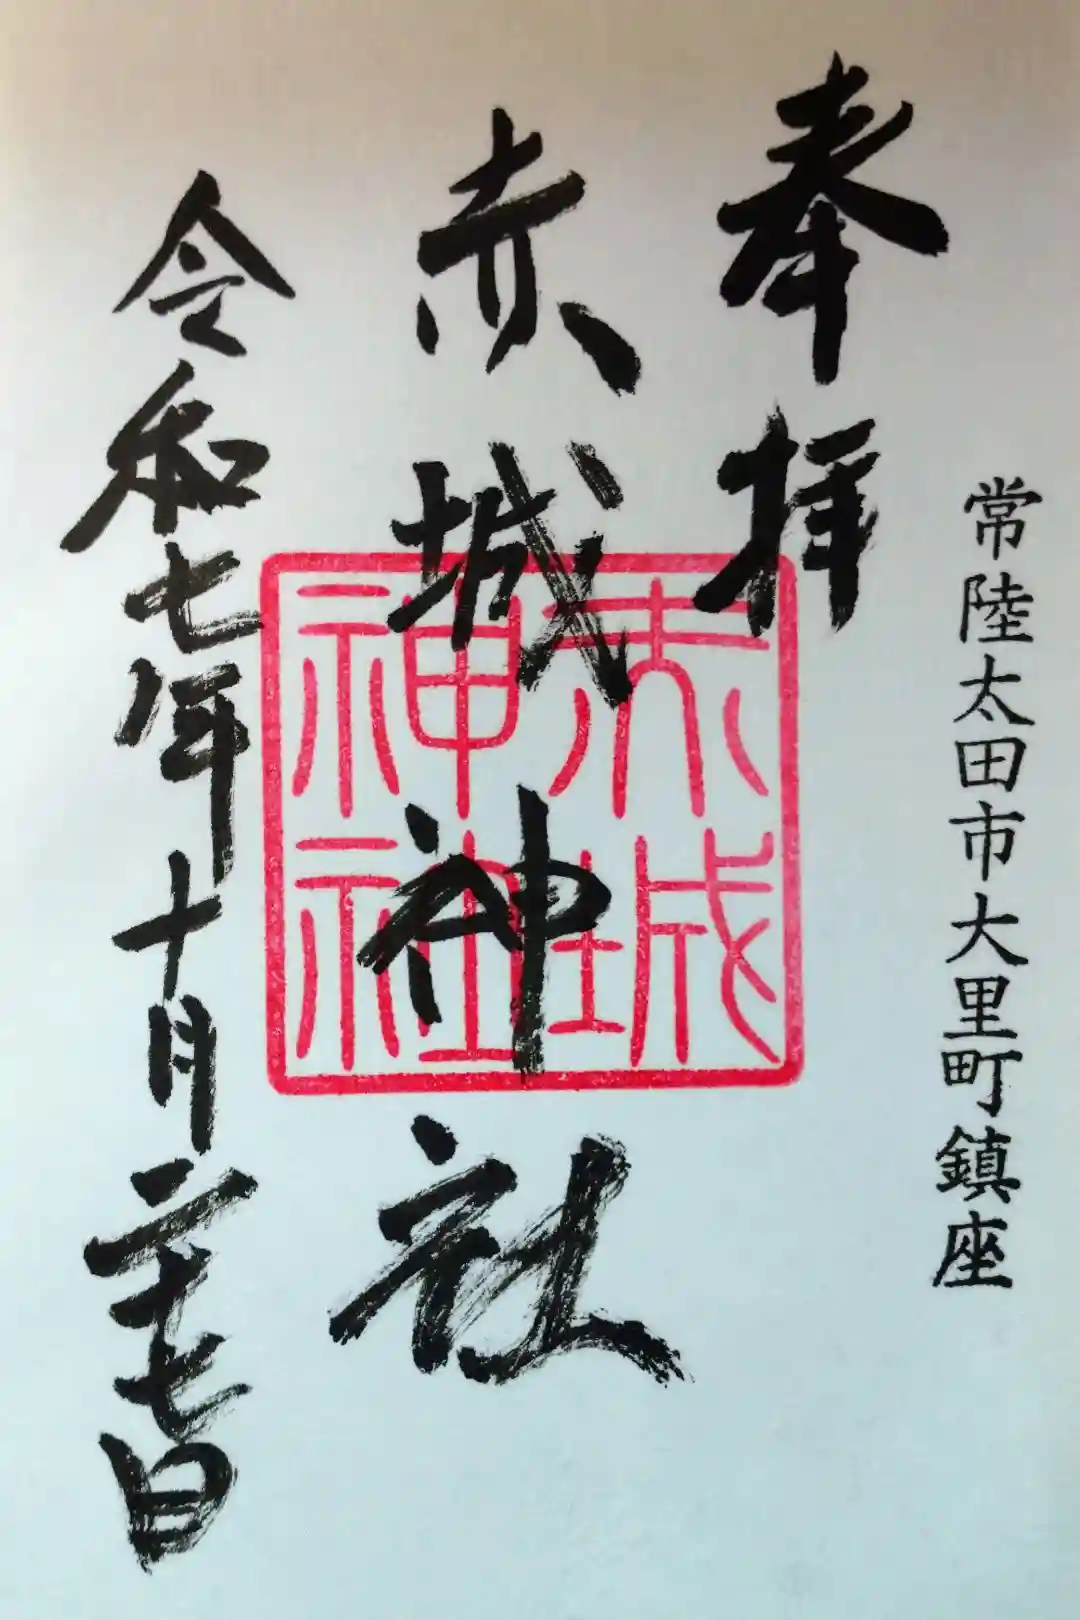 奉拝
常陸太田市大里町鎮座
赤城神社
赤城神社
令和七年十月二十七日